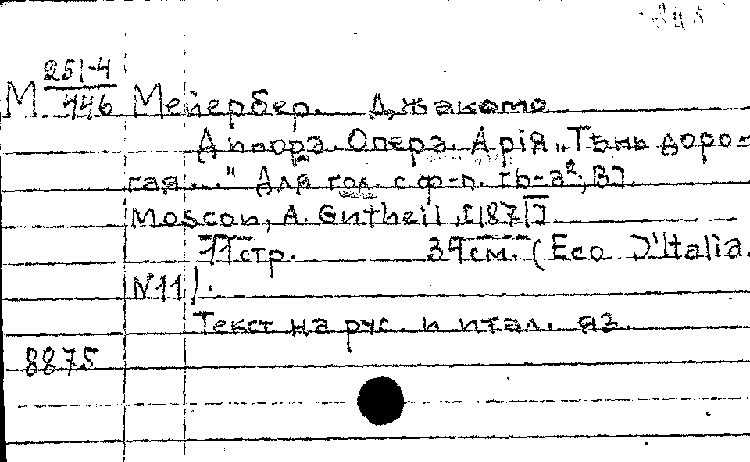 М 251-4
446 Мейербер. Джакомо
Динора. Опера. Арія „Тѣнь доро-
гая..." Для гол. с ф-п. [b-a²; B].
Moscou, A. Gutheil, [187]
11 стр. 34 см. (Eco D'Italia.
N11).
Текст на рус. и итал. яз.
8875